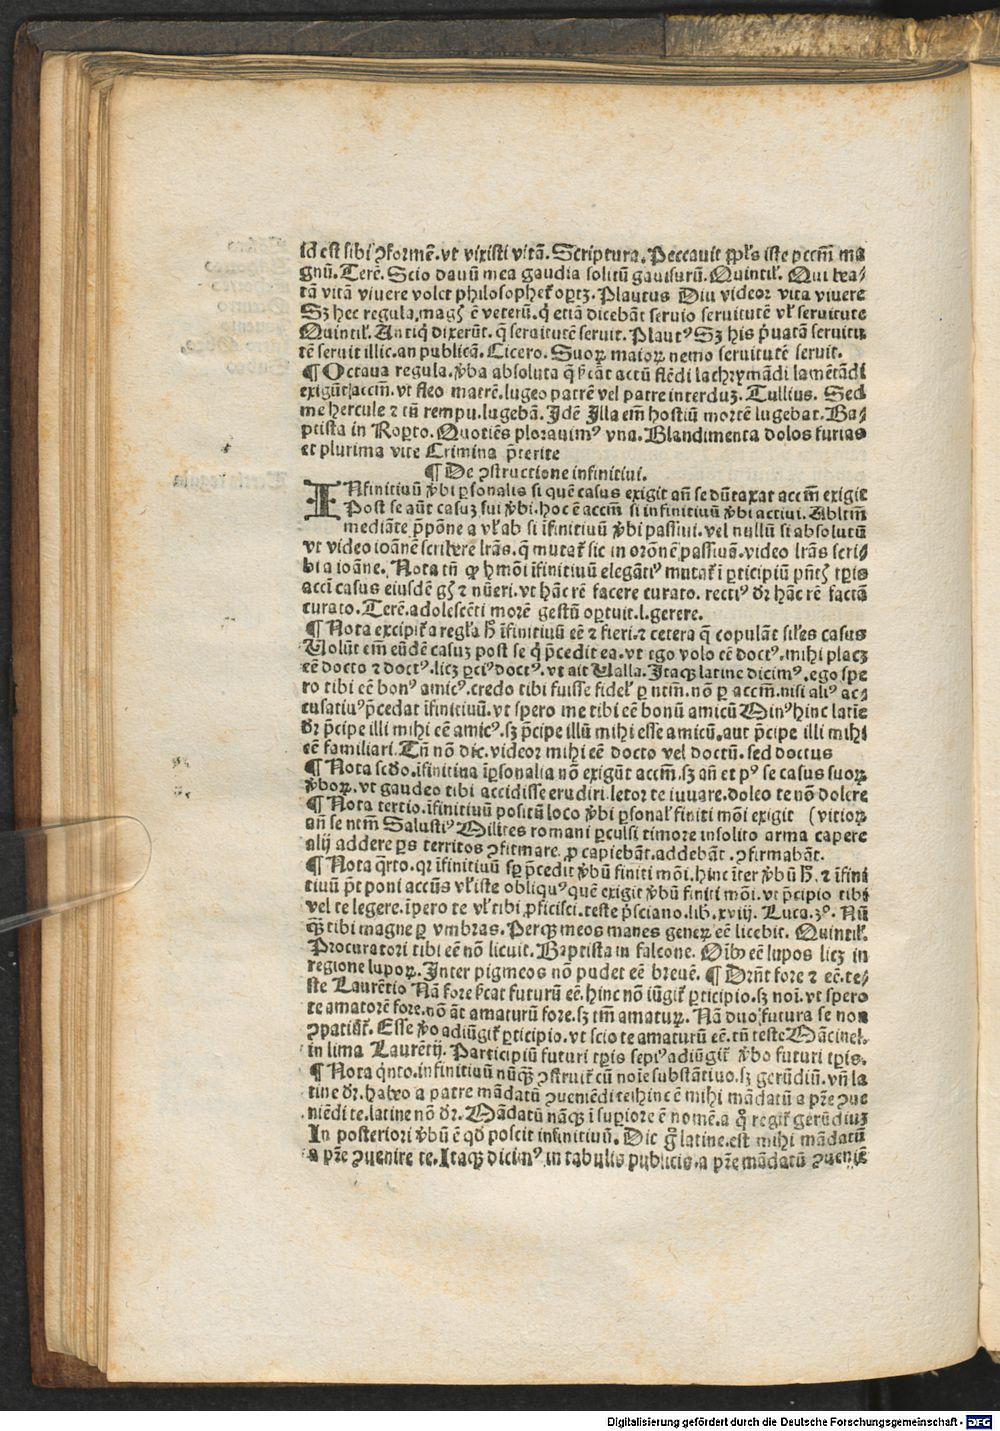 id est sibi ꝯformē. vt vixisti vitā. Scriptura. Peccauit ppl's iste pccm̄ ma
gnū. Terē. Scio dauū mea gaudia solitū gauisurū. Quintil'. Qui bea/
tā vitā viuere volet philosophet᷑ oꝑtꝫ. Plautus Diu videor vita viuere
Sꝫ hec regula, magꝭ ē veterū. q̇ etiā dicebāt seruio seruitutē vl' seruitute
Quintil'. Antiq̇ dixerūt. q̄ seruitutē seruit. Plautꝰ Sꝫ his p̄uatā seruitu
tē seruit illic. an publicā. Cicero. Suoꝝ maioꝝ nemo seruitutē seruit.
¶ Octaua regula. v̄ba absoluta q̄ p̄cāt actū flēdi lachrymādi lamētādi
exigūt accm̄. vt fleo matrē. lugeo patrē vel patre interduꝫ. Tullius. Sed
me hercule ⁊ tū rempu. lugebā. Idē Illa em̄ hostiū mortē lugebat. Ba/
ptista in Roꝑto. Quotiēs plorauimꝰ vna. Blandimenta dolos furias
et plurima vite Crimina p̄terite
¶ De ꝯstructione infinitiui.
INfinitiuū v̄bi ꝑsonalis si quē casus exigit añ se dūtaxat accm̄ exigit
Post se aūt casuꝫ sui v̄bi. hoc ē accm̄ si infinitiuū v̄bi actiui. Abltm̄
mediāte p̄pōne a vl' ab si īfinitiuū v̄bi passiui. vel nullū si absolutū
vt video ioānē scribere lr̄as. q̄ mutat᷑ sic in orōnē passiuā. video lr̄as scri/
bi a ioāne. Nota tn̄ ꝙ hmōi īfinitiuū elegātiꝰ mutat᷑ ī ꝑticipiū pn̄tꝭ tꝑis
accī casus eiusdē gn̄ꝭ ⁊ nūeri. vt hāc rē facere curato. rectiꝰ dr̄ hāc rē factā
curato. Terē. adolescēti morē gestū oꝑtuit. l. gerere.
¶ Nota excipit᷑ a regl'a h̄ īfinitiuū eē ⁊ fieri. ⁊ cetera q̄ copulāt sil'es casus
Uolūt em̄ eūdē casuꝫ post se q̇ p̄cedit ea. vt ego volo eē doctꝰ. mihi placꝫ
eē docto ⁊ doctꝰ. licꝫ ꝑciꝰ doctꝰ. vt ait Ualla. Itaqꝫ latine dicimꝰ. ego spe
ro tibi eē bonꝰ amicꝰ. credo tibi fuisse fidel' ꝑ ntm̄. nō ꝑ accm̄. nisi aliꝰ ac/
cusatiuꝰ p̄cedat īfinitiuū. vt spero me tibi eē bonū amicū Minꝰ hinc latīe
dr̄ p̄cipe illi mihi eē amicꝰ. sꝫ p̄cipe illū mihi esse amicū. aut p̄cipe illi mihi
eē familiari. Tn̄ nō dic. videor mihi eē docto vel doctū. sed doctus
¶ Nota scd̄o. īfinitiua īꝑsonalia nō exigūt accm̄. sꝫ añ et pꝰ se casus suoꝝ
v̄boꝝ. vt gaudeo tibi accidisse erudiri. letor te iuuare. doleo te nō dolere
¶ Nota tertio. īfinitiuū positū loco v̄bi ꝑsonal' finiti mōi exigit (vitioꝝ
añ se ntm̄ Salustiꝰ Milites romani ꝑculsi timore insolito arma capere
alij addere ꝑs territos ꝯfirmare. ꝓ capiebāt. addebāt. ꝯfirmabāt.
¶ Nota q̇rto. qr īfinitiuū sꝑ p̄cedit v̄bū finiti mōi. hinc īter v̄bū h̄. ⁊ īfini
tiuū p̄t poni accūs vl' iste obliquꝰ quē exigit v̄bū finiti mōi. vt p̄cipio tibi
vel te legere. īpero te vl' tibi ꝓficisci. teste p̄sciano. lib. xviij. Luca. 3°. Nū
qꝫ tibi magne ꝑ vmbras. Perqꝫ meos manes gener eē licebit. Quintil'.
Procuratori tibi eē nō licuit. Baptista in falcone. Oībꝰ eē lupos licꝫ in
regione lupoꝝ. Inter pigmeos nō pudet eē breuē. ¶ Dn̄t fore ⁊ eē. te/
ste Laurētio Nā fore p̄cat futurū eē. hinc nō iūgit᷑ ꝑticipio. sꝫ noī. vt spero
te amatorē fore. nō āt amaturū fore. sꝫ tm̄ amatuꝝ. Nā duo futura se non
ꝯpatiūt᷑. Esse v̄o adiūgit᷑ ꝑticipio. vt scio te amaturū eē. tn̄ teste Mācinel.
in lima Laurētij. Participiū futuri tꝑis sepiꝰ adiūgit᷑ v̄bo futuri tꝑis.
¶ Nota q̇nto. infinitiuū nūqꝫ ꝯstruit᷑ cū noīe substātiuo. sꝫ gerūdiū. vn̄ la
tine dr̄. habeo a patre mādatū ꝯueniēdi te. hinc ē mihi mādatū a pr̄e ꝯue
niēdi te. latine nō dr̄. Mādatū nāqꝫ ī supiore ē nomē. a q̊ regit᷑ gerūdiuꝫ
In posteriori v̄bū ē qd̄ poscit infinitiuū. Dic g̊ latine. est mihi mādatū
a pr̄e ꝯuenire te. Itaqꝫ dicimꝰ in tabulis publicis. a pr̄e mādatū ꝯueniē
Digitalisierung gefördert durch die Deutsche Forschungsgemeinschaft - DFG